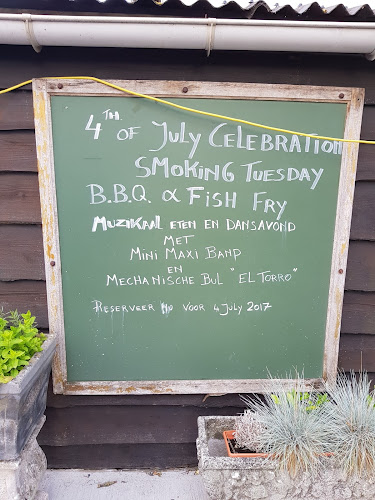 4TH OF JULY CELEBRATION
SMOKING TUESDAY
B.B.Q. & FISH FRY
MUZIKAAL ETEN EN DANSAVOND
MET
MINI MAXI BAND
EN
MECHANISCHE BUL "EL TORRO"
RESERVEER NU VOOR 4 JULY 2017